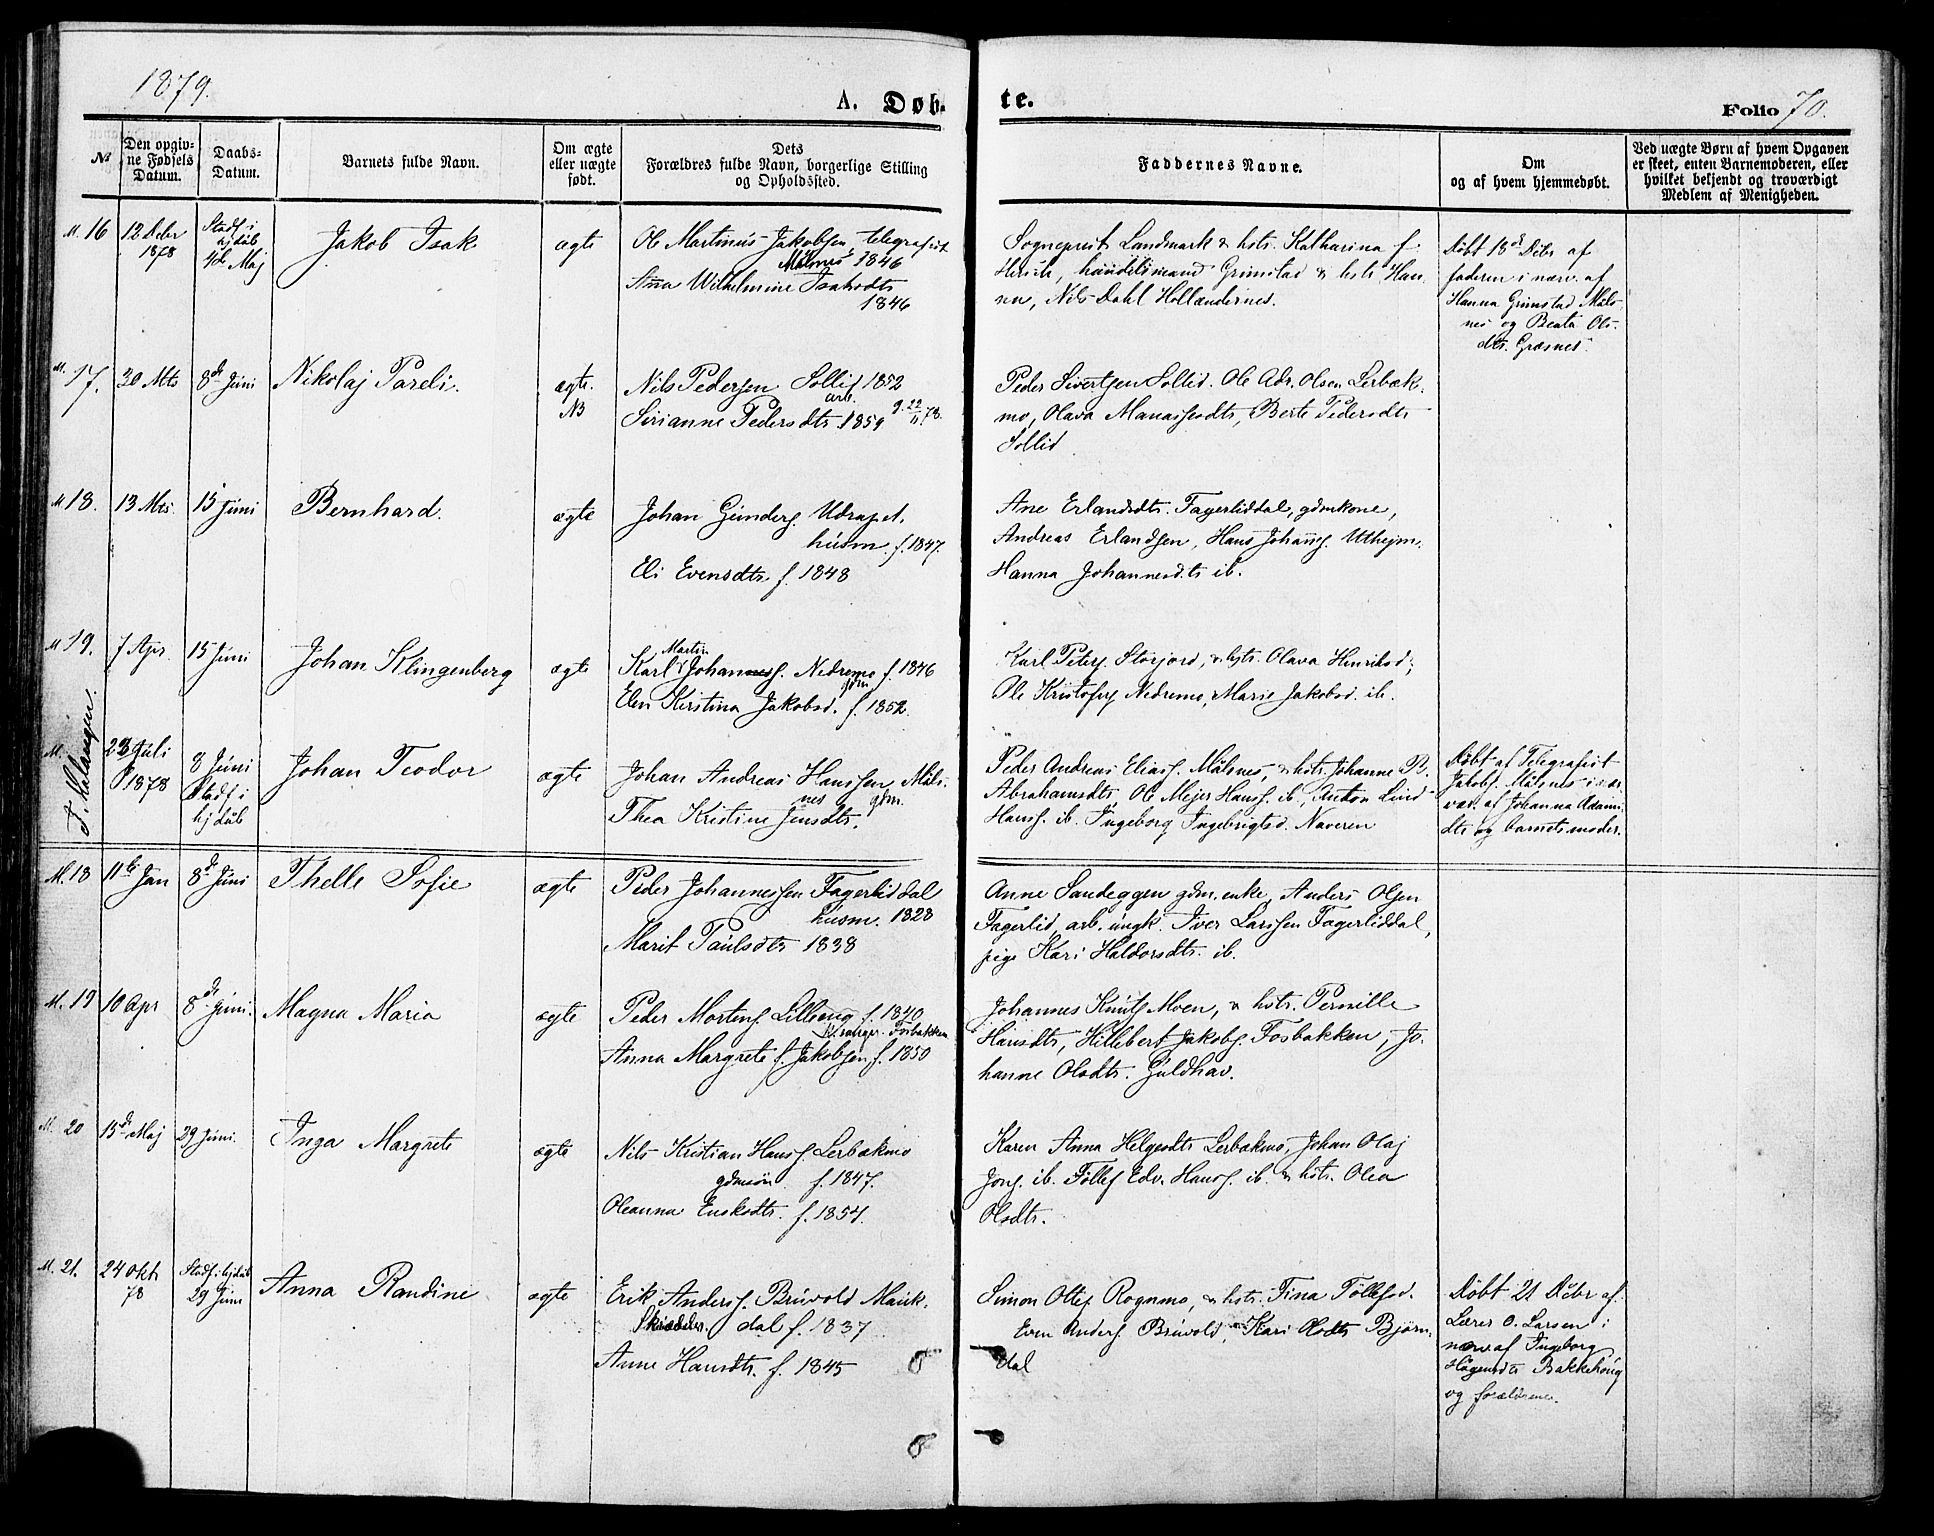 1879.
A. Døb-
te.
Folio 70.
№
Den opgiv-
ne Fødsels
Datum.
Daabs-
Datum.
Barnets fulde Navn.
Om ægte
eller uægte
født.
Dets
Forældres fulde Navn, borgerlige Stilling
og Opholdssted.
Faddernes Navne.
Om
og af hvem hjemmedøbt.
Ved uægte Børn af hvem Opgaven
er skeet, enten Barnemoderen, eller
hvilket bekjendt og troværdigt
Medlem af Menigheden.
M. 16
12 Debr
1878
Stadf. i
hjdåb
4de Maj
Jakob Isak
ægte
Ole Martinus Jakobsen, telegrafist
Målsnes 1846
Anna Wilhelmine Isaksdtr
1846
Sogneprest Landmark & hstr. Katharina f.
handelsmand Grimstad & hstr Han-
na, Nils Dahl Hollændernes.
Døbt 18de Debr af
faderen i nærv. af
Hanna Grimstad Måls-
nes og Beata Ols-
dtr. Græsnes.
M. 17.
30 Mts
8de Juni
Nikolaj Pareli.
ægte.
NB
Nils Pedersen Sollid 1852
arb.
Sirianne Pedersdtr. 1859 g. 22/11 78.
Peder Sivertsen Sollid. Ole Adr. Olsen Lerbæk-
mo, Olava Manassesdtr, Berte Pedersdtr
Sollid
M 18.
13 Mts.
15 Juni
Bernhard.
ægte
Johan Gunders. Udragst.
husm. f. 1847.
Eli Evensdtr. f. 1848
Ane Erlandsdtr. Fagerliddal, gdmkone,
Andreas Erlandsen, Hans Johanns. Utheim.
Hanna Johannesdtr ib.
M 19.
7 Apr.
15 Juni
Johan Klingenberg
ægte
Martin
Karl Johannes. Nedremo f. 1846
gdm
Elen Kristina Jakobsd. f. 1852.
Karl Peters. Storjord, & hstr. Olava Henriksd.,
Ole Kristofers Nedremo, Marie Jakobsd. ib.
T. Malangen.
M.
23 Juli
1878
8 Juni
Stadf. i
hjdåb
Johan Teodor
ægte
Johan Andreas Hanssen Måls-
nes gdm.
Thea Kristine Jensdtr.
Peder Andreas Elias. Målsnes, & hstr. Johanne B.
Abrahamsdtr, Ole Mejer Hans. ib, Anton Lind
Hans. ib. Ingeborg Ingebrigtsd. Naveren
Døbt af Telegrafist
Jakobs. Målsnes i nær-
vær. af Johanna Adami-
dtr og barnets moder.
M. 18
11te Jan
8de Juni
Thelle Sofie
ægte
Peder Johannessen Fagerliddal
husm. 1828
Marit Paulsdtr 1838
Anne Sandeggen gdm. enke, Anders Olsen
Fagerlid, arb. ungk. Iver Larssen Fagerliddal,
pige Kari Haldorsdtr. ib.
M. 19
10 Apr
8de Juni.
Magna Maria
ægte
Peder Mortens. Lilleng f. 1840
Fosbakken
Anna Margrete f. Jakobsen f. 1850
Johannes Knuts. Moen, & hstr. Pernille
Hansdtr, Hillebert Jakobs. Fosbakken, Jo-
hanne Olsdtr. Guldhav.
M. 20
15de Maj
29 Juni.
Inga Margrete
ægte
Nils Kristian Hans. Lerbækmo
gdmsøn f. 1847.
Oleanna Enoksdtr. f. 1854.
Karen Anna Helgesdtr Lerbækmo, Johan Olaj
Jons. ib. Tollef Edv. Hans. ib. & hstr. Olea
Olsdtr.
M. 21.
24 Okt
78
Stadf. i hjdåb
29 Juni
Anna Randine
ægte
Erik Anders. Bruvold Mauk-
dal f. 1837
Anne Hansdtr. f. 1845
Simon Ottes. Rognmo, & hstr. Tina Tollefsd.
Even Anders. Bruvold, Kari Olsdtr Bjørn-
dal
Døbt 21 Debr af
Lærer O. Larsen i
nærv. af Ingeborg
Hågensdtr Bakkehaug
og forældrene.